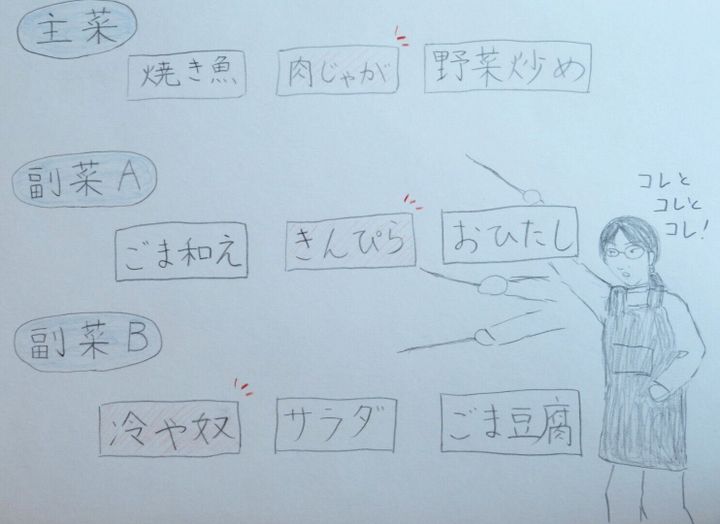 主菜
焼き魚 肉じゃが 野菜炒め
副菜 A
ごま和え きんぴら おひたし
コレと
コレと
コレ!
副菜 B
冷や奴 サラダ ごま豆腐